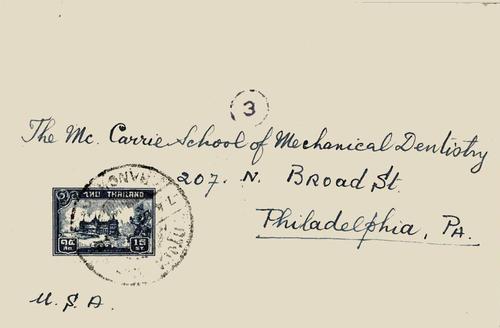 3
The Mc. Carrie School of Mechanical Dentistry
207. N. Broad St.
Philadelphia, PA.
ไทย THAILAND
๑๕ 15
ST.
U.S.A.